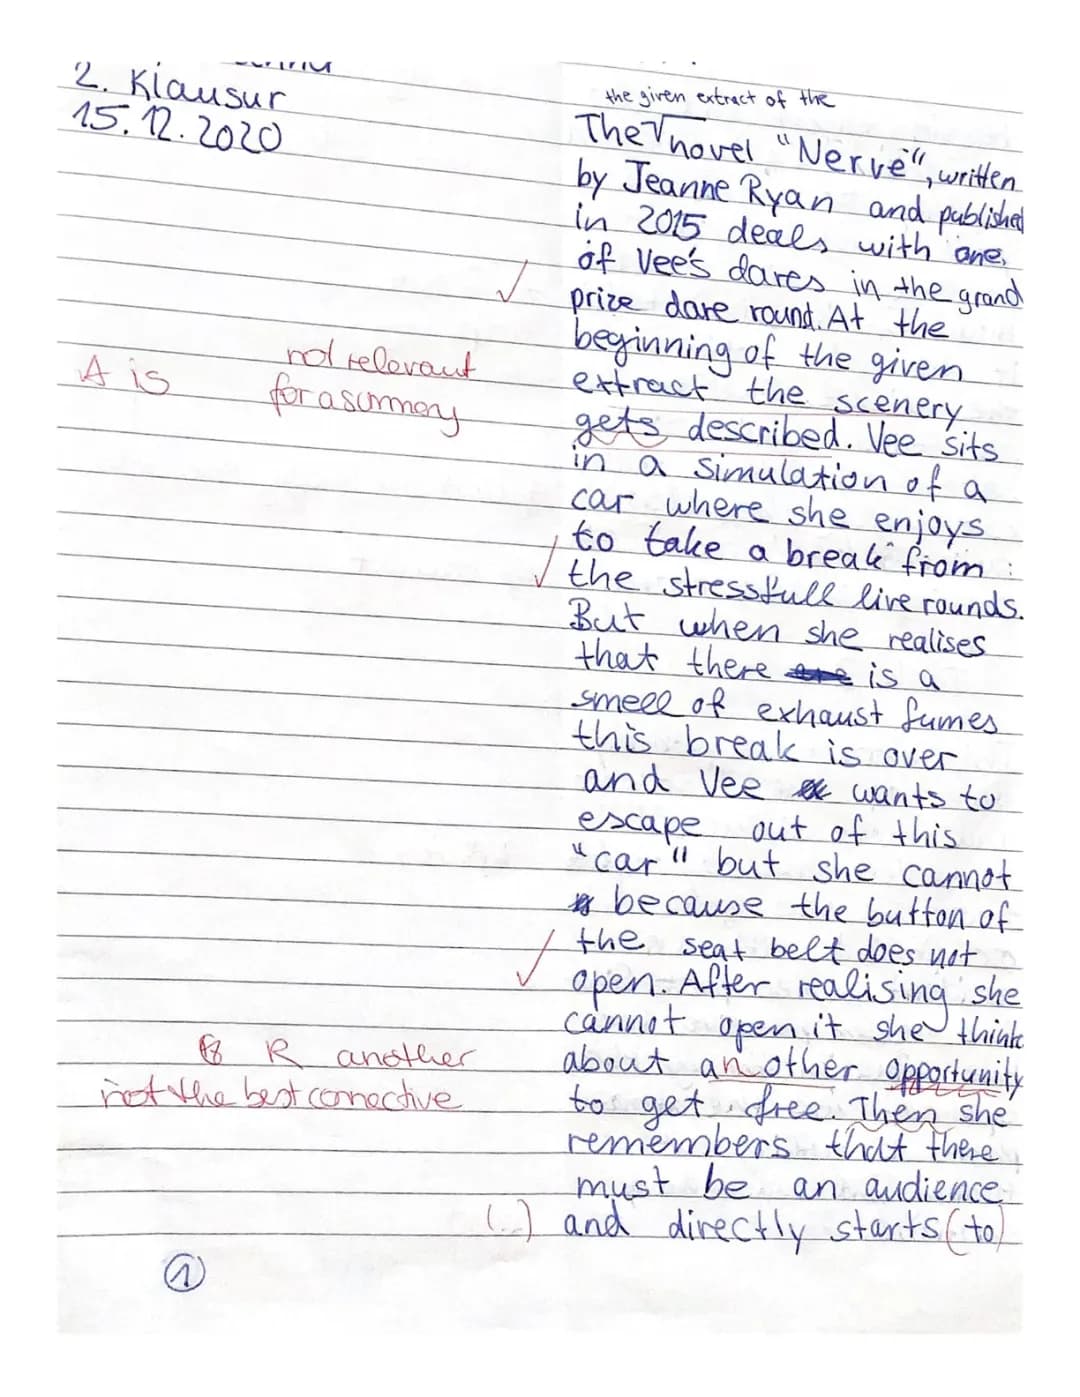 2. Klausur
15.12.2020
the given extract of the
The √ novel "Nerve", written
by Jeanne Ryan and published
in 2015 deals with one
of Vee's dares in the grand
√ prize dare round. At the
beginning of the given
not relevant
A is
for a summary
extract the scenery
gets described. Vee sits
in a simulation of a
car where she enjoys
to take a break from
√ the stressfull live rounds.
But when she realises
that there is a
smell of exhaust fumes
this break is over
and Vee wants to
escape out of this
"car" but she cannot
because the button of
the seat belt does not
√ open. After realising she
cannot open it she think
R another
about an other opportunity
not the best conective
to get free. Then she
remembers that there
must be an audience
(...) and directly starts (to)
1